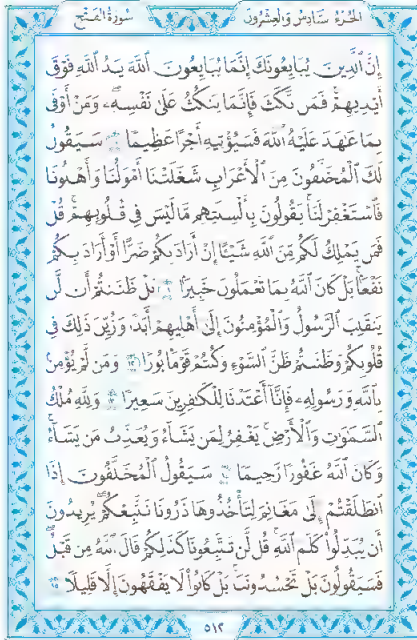 سورة الفتح
الجزء سادس والعشرون
إِنَّ ٱلَّذِينَ يُبَايِعُونَكَ إِنَّمَا يُبَايِعُونَ ٱللَّهَ يَدُ ٱللَّهِ فَوْقَ
أَيْدِيهِمْ فَمَن نَّكَثَ فَإِنَّمَا يَنكُثُ عَلَىٰ نَفْسِهِۦ وَمَنْ أَوْفَىٰ
بِمَا عَٰهَدَ عَلَيْهُ ٱللَّهَ فَسَيُؤْتِيهِ أَجْرًا عَظِيمًا ١٠ سَيَقُولُ
لَكَ ٱلْمُخَلَّفُونَ مِنَ ٱلْأَعْرَابِ شَغَلَتْنَا أَمْوَٰلُنَا وَأَهْلُونَا
فَٱسْتَغْفِرْ لَنَا يَقُولُونَ بِأَلْسِنَتِهِم مَّا لَيْسَ فِى قُلُوبِهِمْ قُلْ
فَمَن يَمْلِكُ لَكُم مِّنَ ٱللَّهِ شَيْـًٔا إِنْ أَرَادَ بِكُمْ ضَرًّا أَوْ أَرَادَ بِكُمْ
نَفْعًۢا بَلْ كَانَ ٱللَّهُ بِمَا تَعْمَلُونَ خَبِيرًۢا ١١ بَلْ ظَنَنتُمْ أَن لَّن
يَنقَلِبَ ٱلرَّسُولُ وَٱلْمُؤْمِنُونَ إِلَىٰٓ أَهْلِيهِمْ أَبَدًا وَزُيِّنَ ذَٰلِكَ فِى
قُلُوبِكُمْ وَظَنَنتُمْ ظَنَّ ٱلسَّوْءِ وَكُنتُمْ قَوْمًۢا بُورًا ١٢ وَمَن لَّمْ يُؤْمِنۢ
بِٱللَّهِ وَرَسُولِهِۦ فَإِنَّآ أَعْتَدْنَا لِلْكَٰفِرِينَ سَعِيرًا ١٣ وَلِلَّهِ مُلْكُ
ٱلسَّمَٰوَٰتِ وَٱلْأَرْضِ يَغْفِرُ لِمَن يَشَآءُ وَيُعَذِّبُ مَن يَشَآءُ
وَكَانَ ٱللَّهُ غَفُورًا رَّحِيمًا ١٤ سَيَقُولُ ٱلْمُخَلَّفُونَ إِذَا
ٱنطَلَقْتُمْ إِلَىٰ مَغَانِمَ لِتَأْخُذُوهَا ذَرُونَا نَتَّبِعْكُمْ يُرِيدُونَ
أَن يُبَدِّلُوا۟ كَلَٰمَ ٱللَّهِ قُل لَّن تَتَّبِعُونَا كَذَٰلِكُمْ قَالَ ٱللَّهُ مِن قَبْلُ
فَسَيَقُولُونَ بَلْ تَحْسُدُونَنَا بَلْ كَانُوا۟ لَا يَفْقَهُونَ إِلَّا قَلِيلًا ١٥
٥١٢